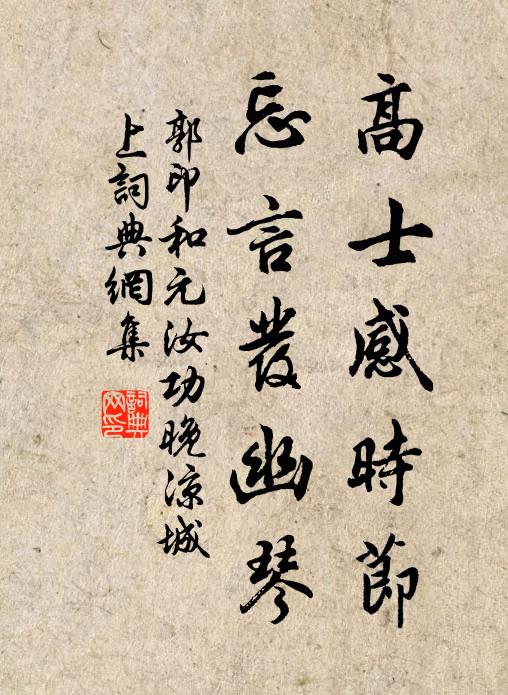 高士感時節
忘言發幽琴
郭印和元汝功晚涼城
上詞典網集
詞典網印